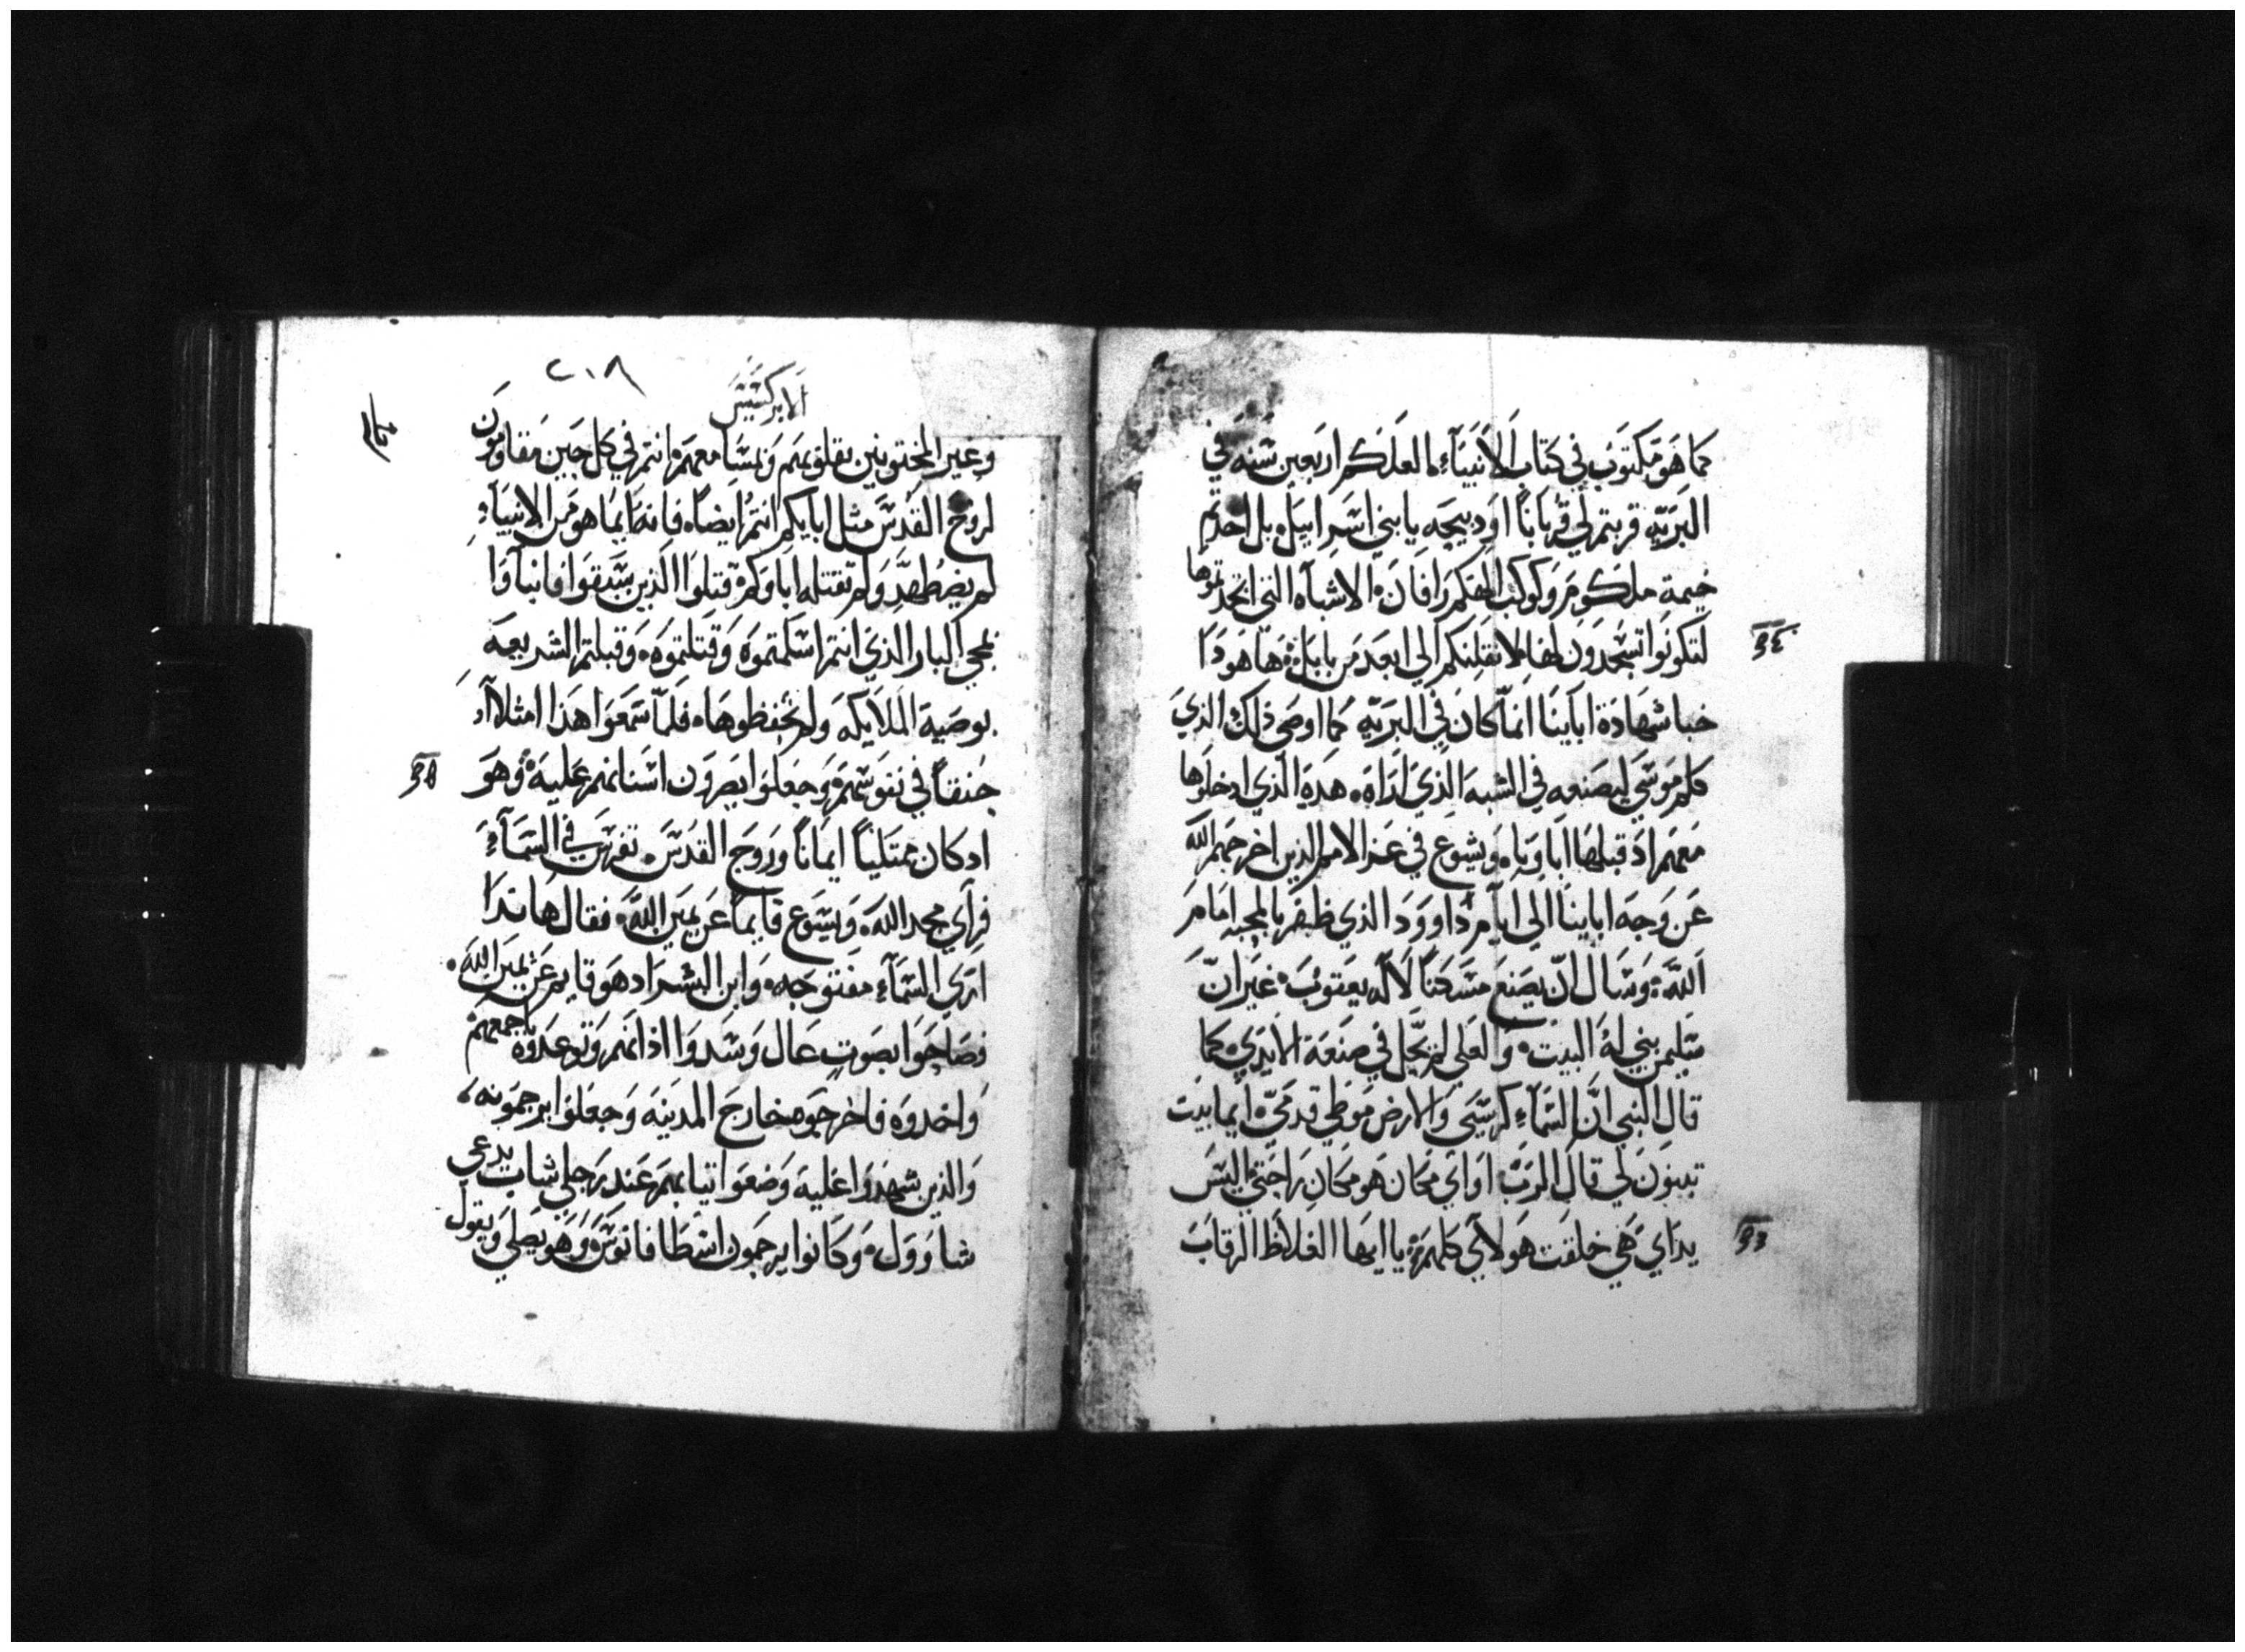 كما هو مكتوب في كتاب الانبيآء لعلكم اربعين سنه في
البريه قربتم لي قرباناً او دبيحه يا بني اسراييل بل اخدتم
خيمة ملكوم وكوكب الهكم رافان الاشباه التي اتخدتموها
لتكونوا تسجدون لها لانقلنكم الي ابعد من بابل ها هودا
خبا شهادة اباينا انما كان في البريه كما اوصى ذلك الذي
كلم موسي ليصنعه في الشبه الذي اراه هده الذي ادخلوها
معهم اد قبلها اباونا ويشوع في عز الامم الذين اخرجهم الله
عن وجه اباينا الي ايام داوود الذي ظفر بالمحبه امام
الله وسال ان يصنع مسكناً لاله يعقوب غير ان
سليمن بني له البيت والعلي لم يحل في صنعة الايدي كما
قال النبي ان السمآء كرسيي والارض موطي قدمي ايما بيت
تبنون لي قال الرب او اي مكان هو مكان راحتي اليس
يداي هي خلقت هولاي كلهم يا ايها الغلاظ الرقاب
٢٠٨
الابركسيس
وغير المختونين بقلوبهم ومسامعهم انتم في كل حين مقاومون
لروح القدس مثل ابايكم انتم ايضاً فانه ايما هو من الانبيآء
لم يضطهد ولم تقتله اباوكم قتلوا الذين سبقوا فانباوا
بمجي البار الذي انتم اسلمتموه وقتلتموه وقبلتم الشريعه
بوصية الملايكه ولم تحفظوها فلما سمعوا هذا امتلاوا
حنقاً في نفوسهم وجعلوا يصرون اسنانهم عليه وهو
ادكان ممتلياً ايماناً وروح القدس تفرس في السمآء
فراي مجد الله ويسوع قايماً عن يمين الله فقال هاندا
اري السمآء مفتوحه وابن البشر اد هو قايم عن يمين الله
فصاحوا بصوت عال وسدوا اذانهم وتوعدوه باجمعهم
واخدوه فاخرجوه خارج المدينه وجعلوا يرجمونه
والذين شهدوا عليه وضعوا تيابهم عند رجلي شاب يدعي
شاوول وكانوا يرجمون اسطافانوس وهو يصلي ويقول